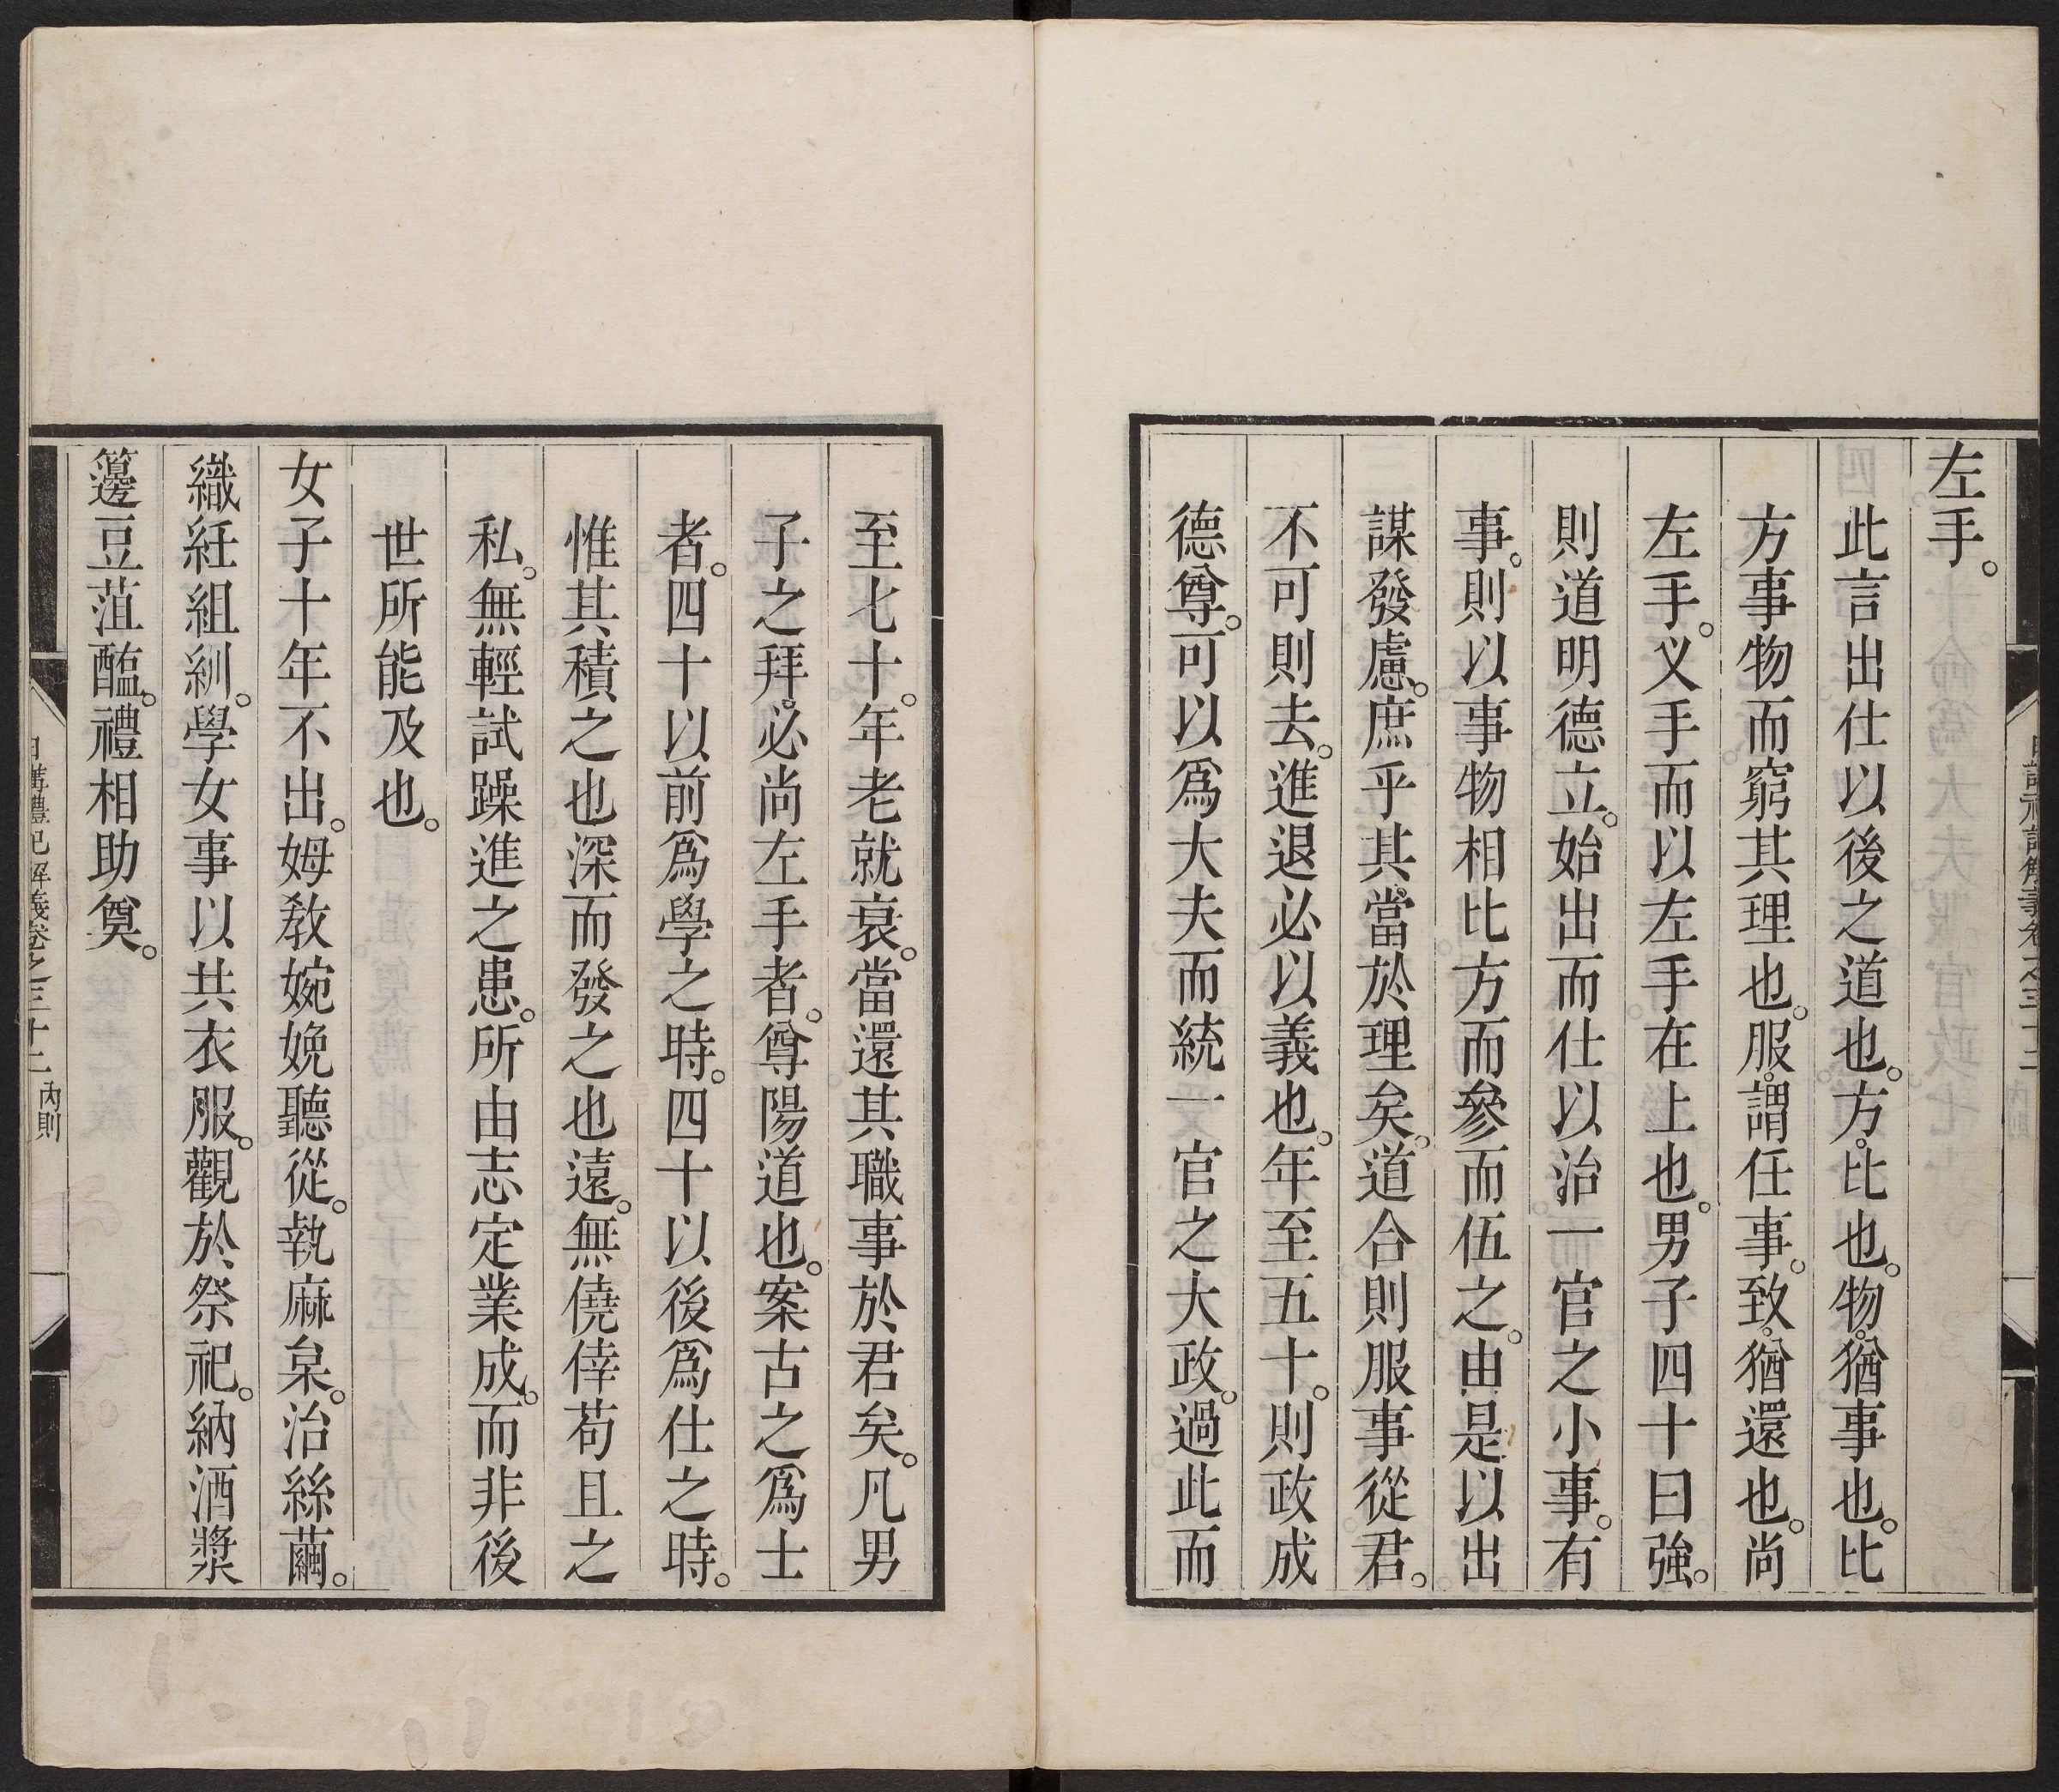 左手。
此言出仕以後之道也。方。比也。物。猶事也。比
方事物而窮其理也。服。謂任事。致。猶還也。尚
左手。义手而以左手在上也。男子四十曰強。
則道明德立。始出而仕以治一官之小事。有
事。則以事物相比方而參而伍之。由是以出
謀發慮。庶乎其當於理矣。道合則服事從君。
不可則去。進退必以義也。年至五十。則政成
德尊。可以爲大夫而統一官之大政。過此而
至七十。年老就衰。當還其職事於君矣。凡男
子之拜。必尚左手者。尊陽道也。案古之爲士
者。四十以前爲學之時。四十以後爲仕之時。
惟其積之也深而發之也遠。無僥倖苟且之
私。無輕試躁進之患。所由志定業成。而非後
世所能及也。
女子十年不出。姆教婉娩聽從。執麻枲。治絲繭。
織紝組紃。學女事以共衣服。觀於祭祀。納酒漿
籩豆菹醢。禮相助奠。
日講禮記解義卷之三十二 內則